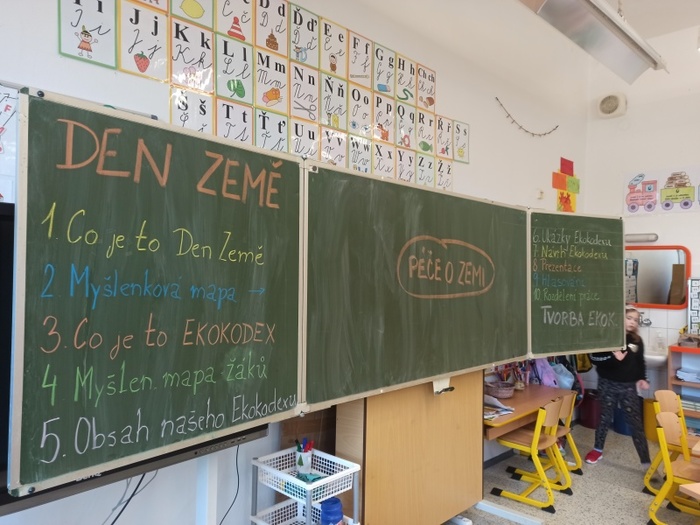 Ii
Jj
Kk
Ll
Mm
Nn
Ňň
Oo
Pp
Qq
Rr
Řř
Ss
Šš
Tt
Ťť
Uu
Vv
Ww
Xx
Yy
Zz
Žž
Dd
Ďď
Ee
Ff
Gg
Hh
Chch
DEN ZEMĚ
1. Co je to Den Země
2 Myšlenková mapa →
3. Co je to EKOKODEX
4 Myšlen. mapa žáků
5. Obsah našeho Ekokodexu
PÉČE O ZEMI
6. Ukázky Ekokodexu
7. Návrh Ekokodexu
8. Prezentace
9. Hlasování
10. Rozdělení práce
TVORBA EKOK.